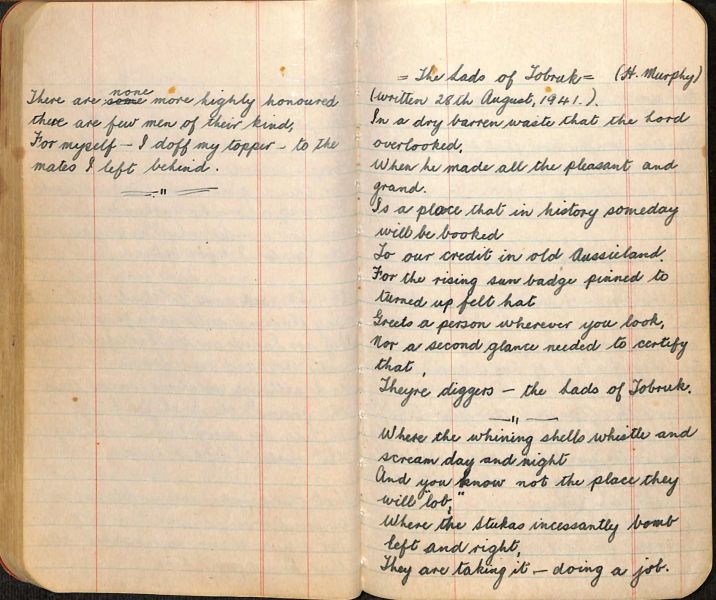 There are some none more highly honoured
there are few men of their kind,
For myself - I doff my topper - to the
mates I left behind.
= The Lads of Tobruk = (H. Murphy)
(written 28th August, 1941.).
In a dry barren waste that the Lord
overlooked,
When he made all the pleasant and
grand.
Is a place that in history someday
will be booked
To our credit in old Aussieland.
For the rising sun badge pinned to
turned up felt hat
Greets a person wherever you look,
Nor a second glance needed to certify
that,
Theyre diggers - the Lads of Tobruk.
Where the whining shells whistle and
scream day and night
And you know not the place they
will "lob,"
Where the Stukas incessantly bomb
left and right,
They are taking it - doing a job.